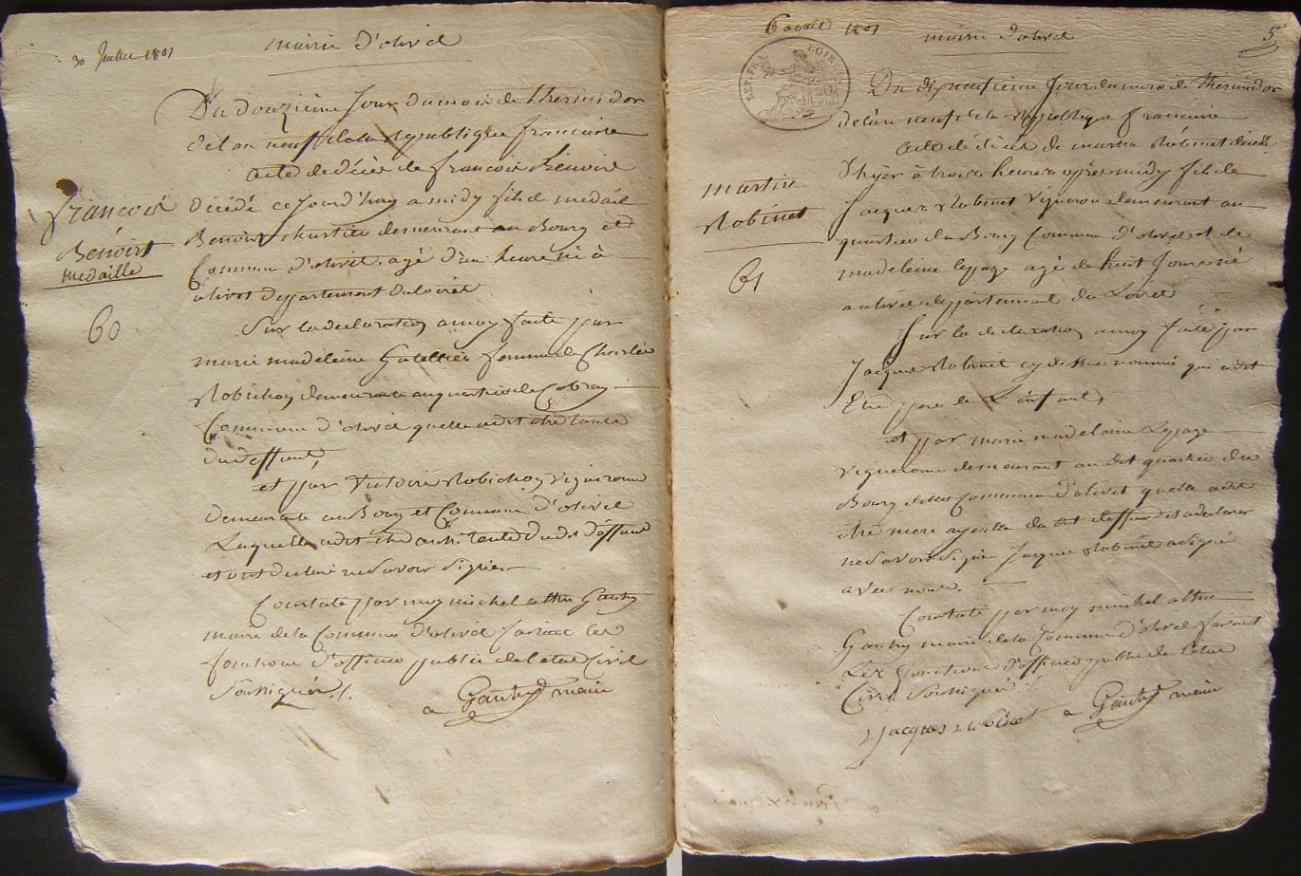 30 Juillet 1801
mairie d'olivet
Du douzieme Jour du mois de thermidor
de l'an neuf de la republique francaise
acte de décès de francois Benoist
décédé ce jourd'huy a midy fils de medail
Benoist chartier demeurant au Bourg et
Commune d'olivet agé d'un heure né à
olivet departement du loiret
francois
Benoist
medaille
60
Sur la declaration a moy faite par
marie madeleine femme de Charles
Robichon demeurante au quartier de
Commune d'olivet quelle a dit être tante
du deffunt,
et par Victoire Robichon Vigneronne
demeurante au Bourg et Commune d'olivet
Laquelle a dit être aussi tante dudit deffunt
et ont declaré ne savoir signer
Constaté par moy michel Gautry
maire de la Commune d'olivet faisant les
fonctions d'officier public de l'etat civil
Soussigné /.
Gautry maire
6 aout 1801
mairie d'olivet
5
REP. FRA.
Du dixneufieme Jour du mois de thermidor
de l'an neuf de la republique francaise
acte de décès de martin Robinet décédé
d'hyer à trois heures apres midy fils de
Jacques Robinet Vigneron demeurant au
quartier du Bourg Commune d'olivet et de
madeleine lepage agé de huit Jours né
a olivet departement du Loiret
martin
Robinet
61
Sur la declaration a moy faite par
Jacques Robinet cy dessus nommé qui a dit
Etre pere de L'enfant,
et par marie madelaine Lepage
vigneronne demeurant au dit quartier du
Bourg Commune d'olivet quelle a dit
être mere dudit deffunt et a declaré
ne savoir signer Jacques Robinet a signé
avec nous.
Constaté par moy michel
Gautry maire de la Commune d'olivet faisant
Les fonctions d'officier public de l'etat
Civil Soussigné
Jacques Gautry maire